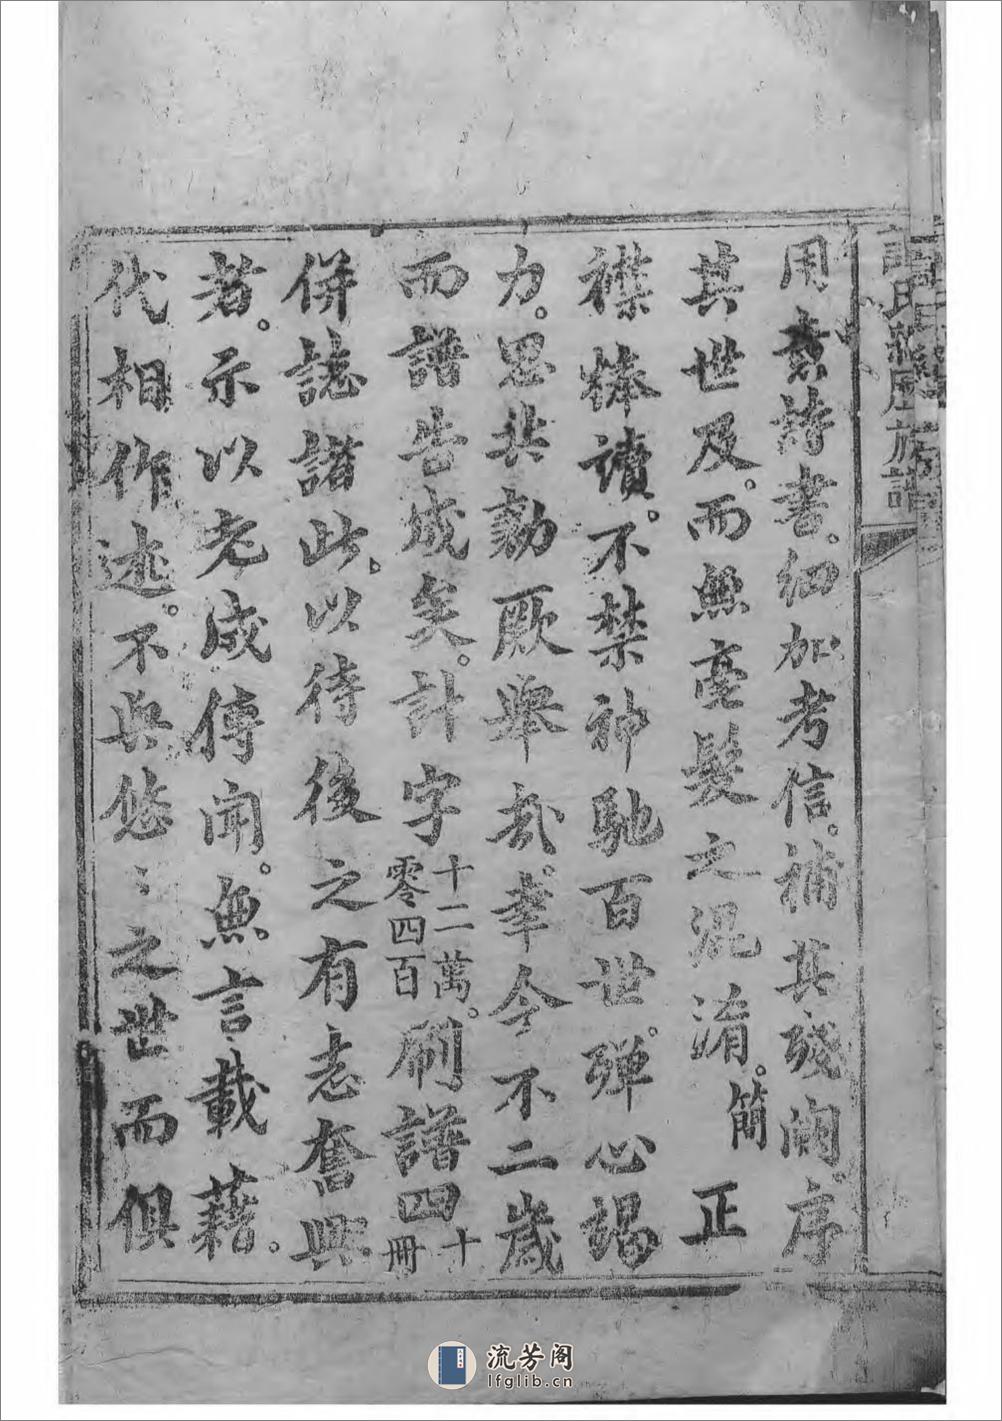 用素詩書。細加考信。補其殘闕。序
其世及。而無毫髮之混淆。簡正
襟捧讀。不禁神馳百世。殫心竭
力。思共勷厥舉哉。幸今不二歲
而譜告成矣。計字十二萬。零四百刷譜四十冊
併誌諸此。以待後之有志奮興
者。示以老成傳聞。無言載藉。
代相作述。不與悠〻之世而俱
氏族譜
流芳阁
lfglib.cn